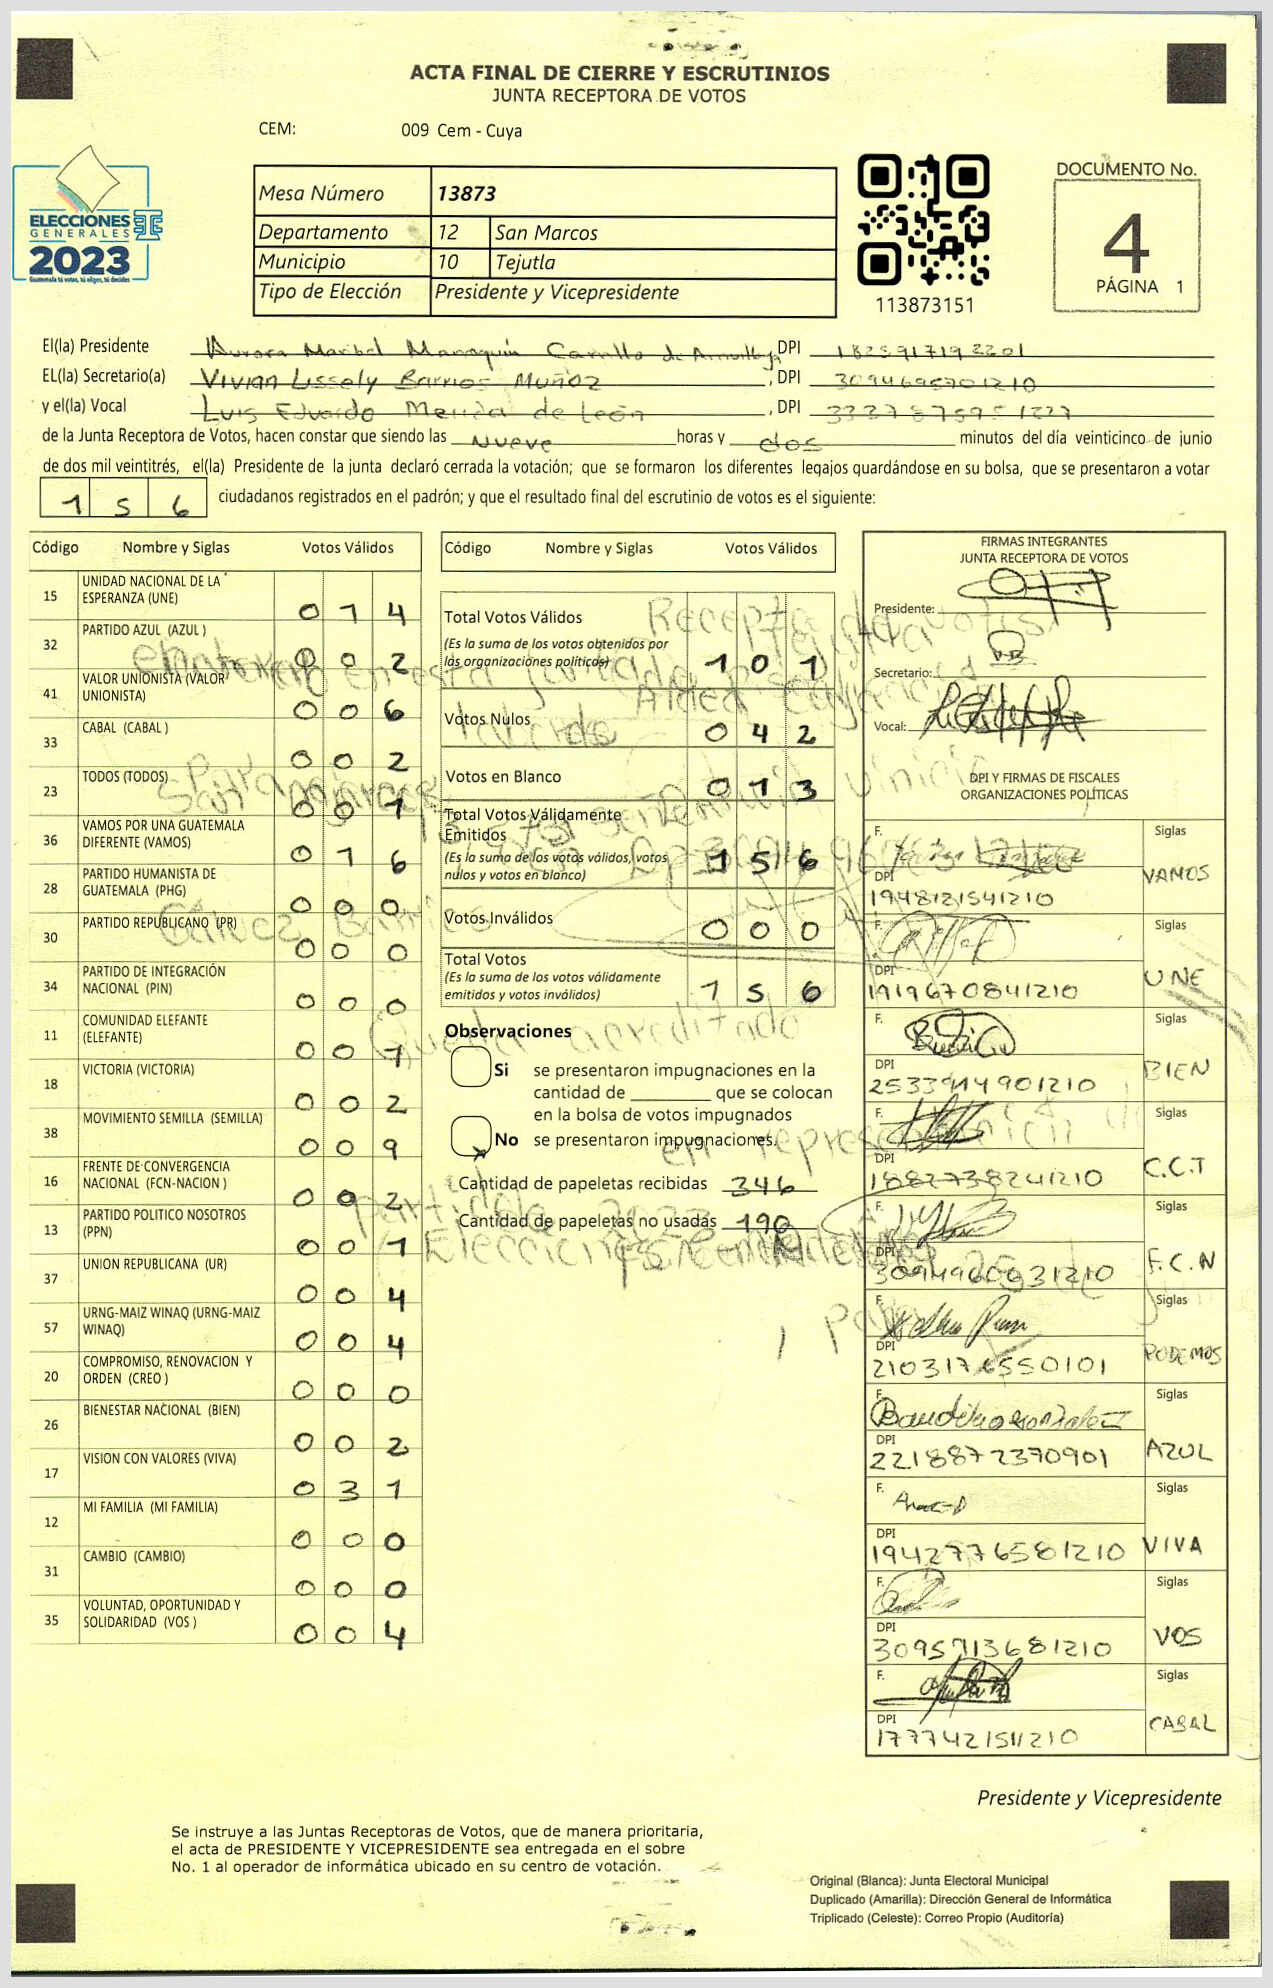 ACTA FINAL DE CIERRE Y ESCRUTINIOS
JUNTA RECEPTORA DE VOTOS
CEM: 009 Cem - Cuya
ELECCIONES
GENERALES
2023
Guatemala tú votas, tú eliges, tú decides
Mesa Número 13873
Departamento 12 San Marcos
Municipio 10 Tejutla
Tipo de Elección Presidente y Vicepresidente
113873151
DOCUMENTO No.
4
PÁGINA 1
El(la) Presidente Aurora Maribel Marroquín Carrillo de , DPI 1825917192201
EL(la) Secretario(a) Vivian Lissely Barrios Muñoz , DPI 3094695701210
y el(la) Vocal Luis Eduardo Merida de León , DPI 3337875951227
de la Junta Receptora de Votos, hacen constar que siendo las Nueve horas y dos minutos del día veinticinco de junio
de dos mil veintitrés, el(la) Presidente de la junta declaró cerrada la votación; que se formaron los diferentes legajos guardándose en su bolsa, que se presentaron a votar
156 ciudadanos registrados en el padrón; y que el resultado final del escrutinio de votos es el siguiente:
Código Nombre y Siglas Votos Válidos
15 UNIDAD NACIONAL DE LA ESPERANZA (UNE) 014
32 PARTIDO AZUL (AZUL ) 002
41 VALOR UNIONISTA (VALOR UNIONISTA) 006
33 CABAL (CABAL ) 002
23 TODOS (TODOS) 001
36 VAMOS POR UNA GUATEMALA DIFERENTE (VAMOS) 016
28 PARTIDO HUMANISTA DE GUATEMALA (PHG) 000
30 PARTIDO REPUBLICANO (PR) 000
34 PARTIDO DE INTEGRACIÓN NACIONAL (PIN) 000
11 COMUNIDAD ELEFANTE (ELEFANTE) 001
18 VICTORIA (VICTORIA) 002
38 MOVIMIENTO SEMILLA (SEMILLA) 009
16 FRENTE DE CONVERGENCIA NACIONAL (FCN-NACION ) 002
13 PARTIDO POLITICO NOSOTROS (PPN) 001
37 UNION REPUBLICANA (UR) 004
57 URNG-MAIZ WINAQ (URNG-MAIZ WINAQ) 004
20 COMPROMISO, RENOVACION Y ORDEN (CREO ) 000
26 BIENESTAR NACIONAL (BIEN) 002
17 VISION CON VALORES (VIVA) 031
12 MI FAMILIA (MI FAMILIA) 000
31 CAMBIO (CAMBIO) 000
35 VOLUNTAD, OPORTUNIDAD Y SOLIDARIDAD (VOS ) 004
Código Nombre y Siglas Votos Válidos
Total Votos Válidos
(Es la suma de los votos obtenidos por
las organizaciones políticas) 101
Votos Nulos 042
Votos en Blanco 013
Total Votos Válidamente
Emitidos
(Es la suma de los votos válidos, votos
nulos y votos en blanco) 156
Votos Inválidos 000
Total Votos
(Es la suma de los votos válidamente
emitidos y votos inválidos) 156
Observaciones
Si se presentaron impugnaciones en la
cantidad de ________ que se colocan
en la bolsa de votos impugnados
No se presentaron impugnaciones.
Cantidad de papeletas recibidas 346
Cantidad de papeletas no usadas 190
Queda acreditado
FIRMAS INTEGRANTES
JUNTA RECEPTORA DE VOTOS
Presidente:
Secretario:
Vocal:
DPI Y FIRMAS DE FISCALES
ORGANIZACIONES POLÍTICAS
F. Siglas
DPI 1948121541210 VAMOS
F. Siglas
DPI 1919670841210 UNE
F. Siglas
DPI 2533914901210 BIEN
F. Siglas
DPI 1882738241210 C.C.T
F. Siglas
DPI 3094960031210 F.C.N
F. Siglas
DPI 2103176550101 PODEMOS
F. Siglas
DPI 2218872370901 AZUL
F. Siglas
DPI 1942776581210 VIVA
F. Siglas
DPI 3095713681210 VOS
F. Siglas
DPI 1777421511210 CABAL
Presidente y Vicepresidente
Se instruye a las Juntas Receptoras de Votos, que de manera prioritaria,
el acta de PRESIDENTE Y VICEPRESIDENTE sea entregada en el sobre
No. 1 al operador de informática ubicado en su centro de votación.
Original (Blanca): Junta Electoral Municipal
Duplicado (Amarilla): Dirección General de Informática
Triplicado (Celeste): Correo Propio (Auditoría)